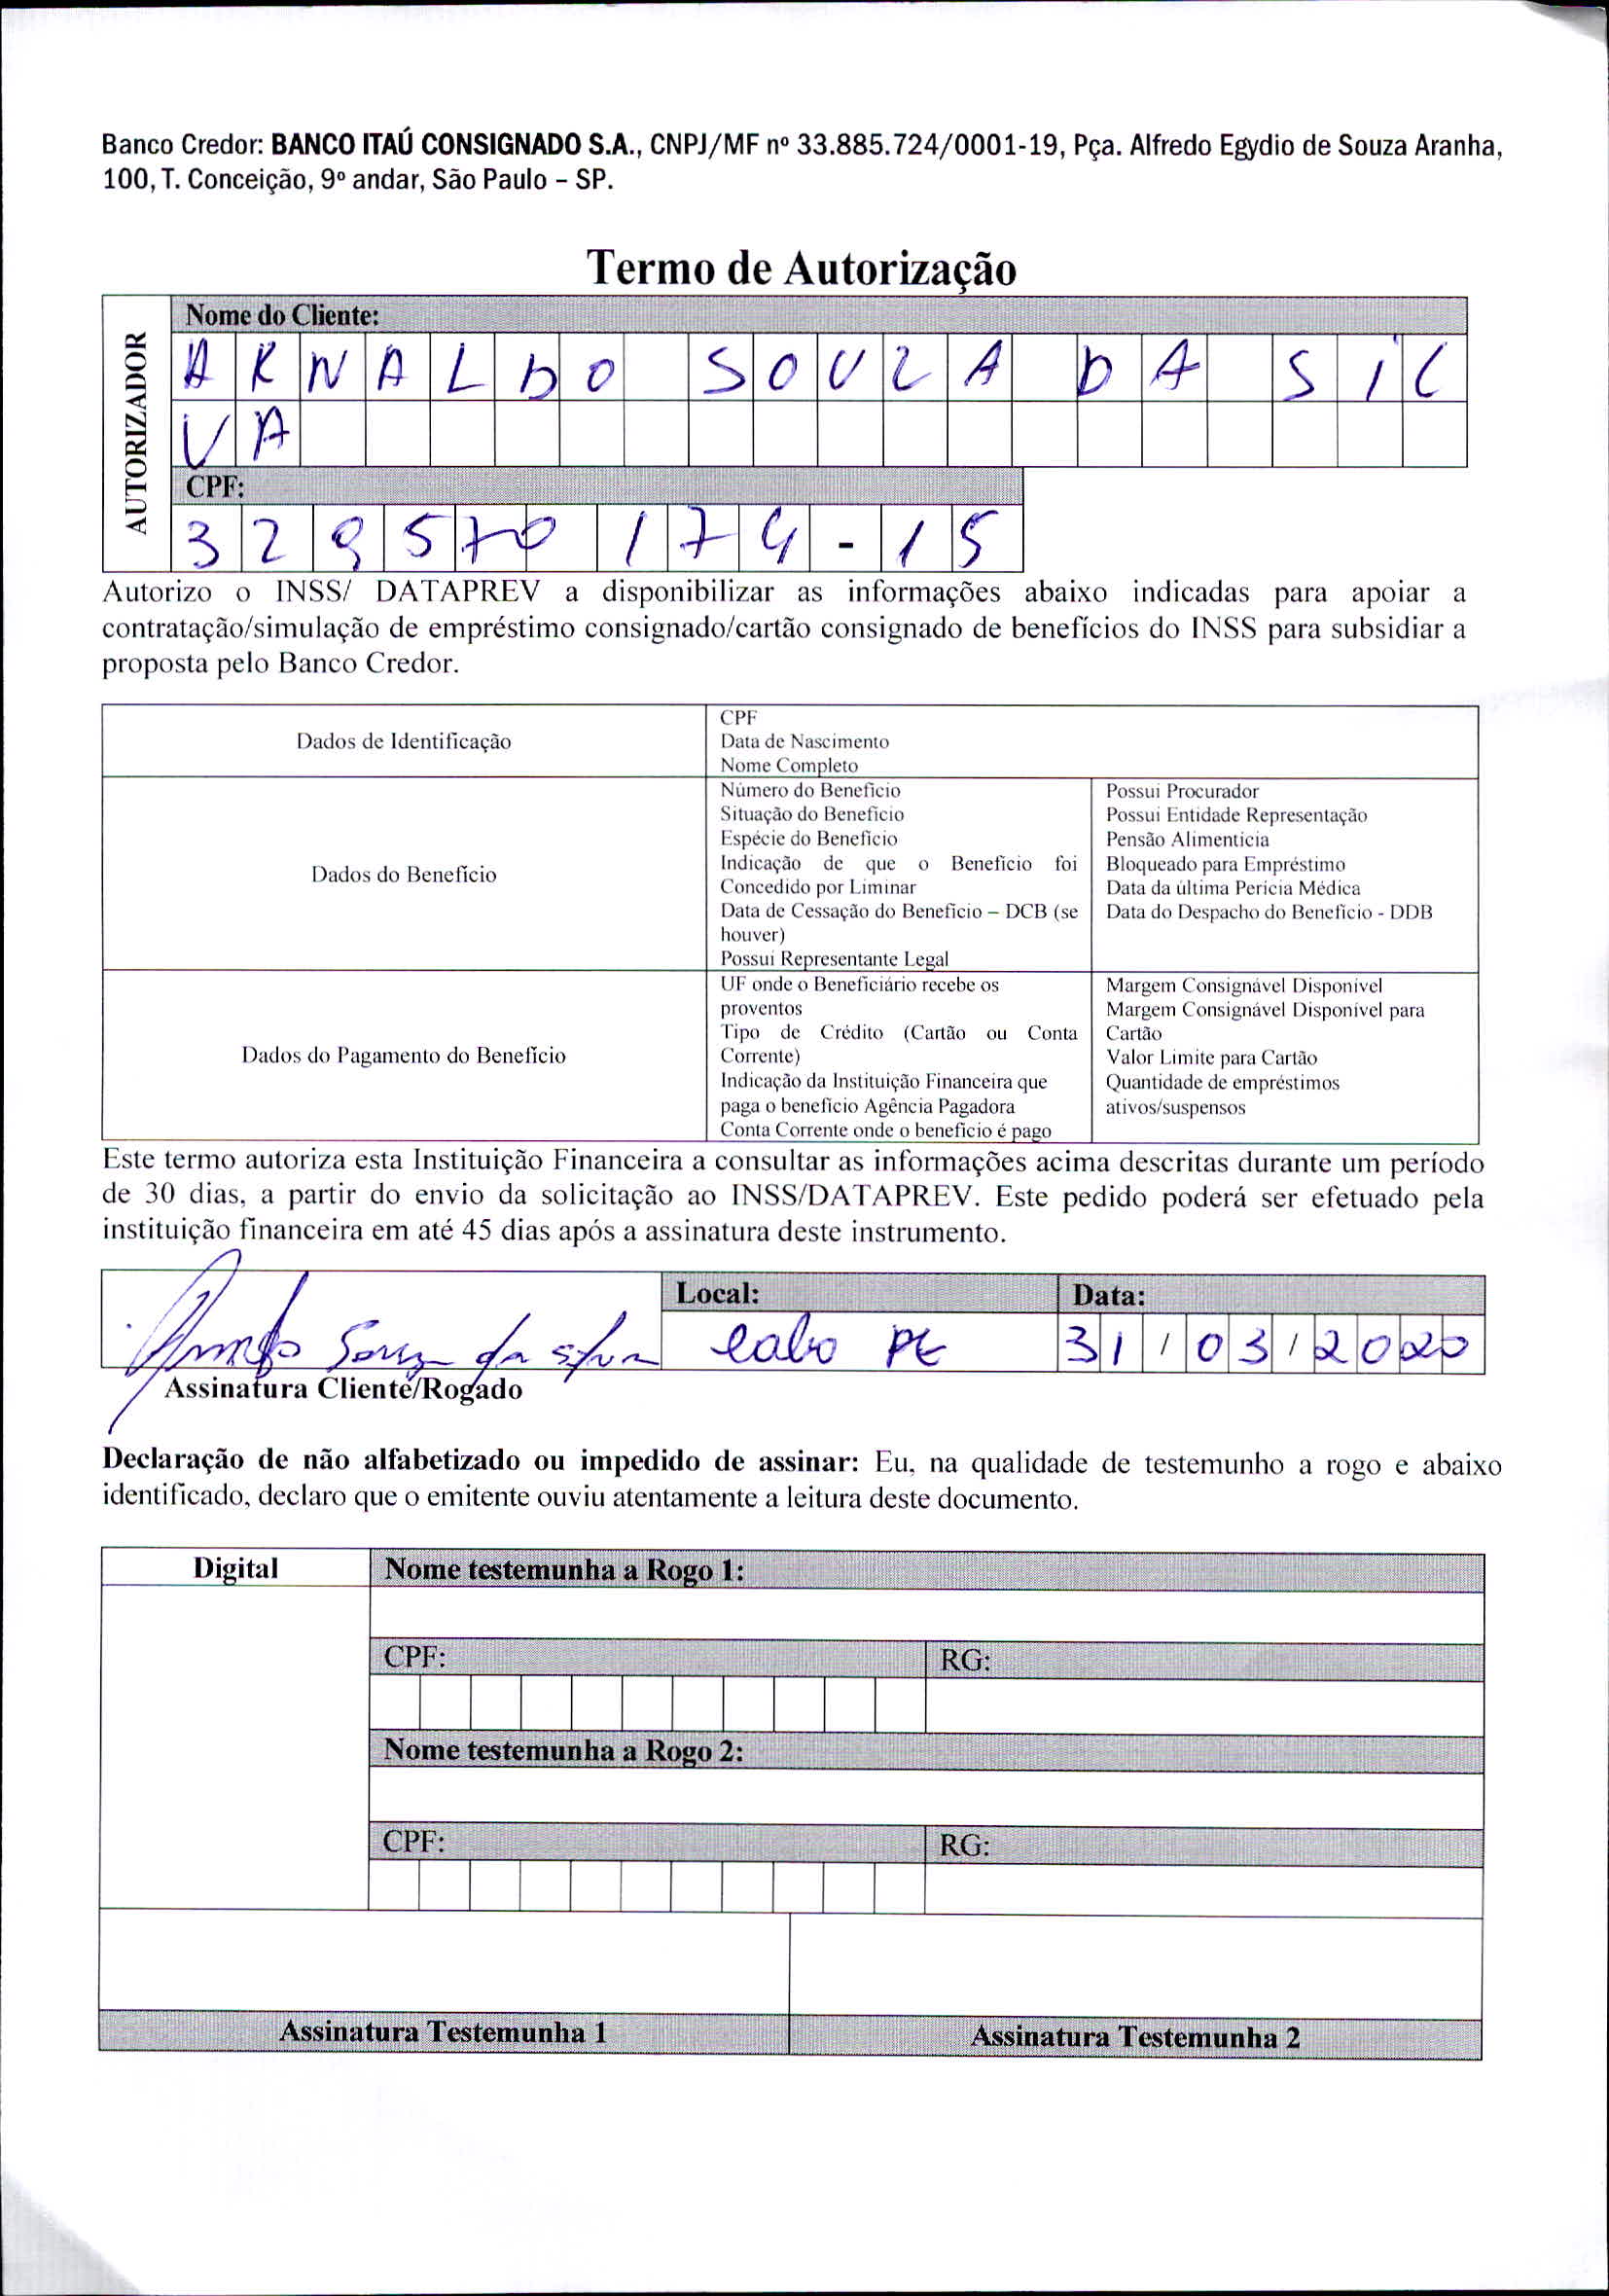 Banco Credor: BANCO ITAÚ CONSIGNADO S.A., CNPJ/MF nº 33.885.724/0001-19, Pça. Alfredo Egydio de Souza Aranha,
100, T. Conceição, 9º andar, São Paulo – SP.
Termo de Autorização
AUTORIZADOR
Nome do Cliente:
ARNALDO SOUZA DA SIL
VA
CPF:
329570174-15
Autorizo o INSS/ DATAPREV a disponibilizar as informações abaixo indicadas para apoiar a
contratação/simulação de empréstimo consignado/cartão consignado de benefícios do INSS para subsidiar a
proposta pelo Banco Credor.
Dados de Identificação
CPF
Data de Nascimento
Nome Completo
Dados do Benefício
Número do Benefício
Situação do Benefício
Espécie do Benefício
Indicação de que o Benefício foi
Concedido por Liminar
Data de Cessação do Benefício – DCB (se
houver)
Possui Representante Legal
Possui Procurador
Possui Entidade Representação
Pensão Alimentícia
Bloqueado para Empréstimo
Data da última Perícia Médica
Data do Despacho do Benefício - DDB
Dados do Pagamento do Benefício
UF onde o Beneficiário recebe os
proventos
Tipo de Crédito (Cartão ou Conta
Corrente)
Indicação da Instituição Financeira que
paga o benefício Agência Pagadora
Conta Corrente onde o benefício é pago
Margem Consignável Disponível
Margem Consignável Disponível para
Cartão
Valor Limite para Cartão
Quantidade de empréstimos
ativos/suspensos
Este termo autoriza esta Instituição Financeira a consultar as informações acima descritas durante um período
de 30 dias, a partir do envio da solicitação ao INSS/DATAPREV. Este pedido poderá ser efetuado pela
instituição financeira em até 45 dias após a assinatura deste instrumento.
Arnaldo Souza da Silva
Assinatura Cliente/Rogado
Local:
Cabo PE
Data:
31/03/2020
Declaração de não alfabetizado ou impedido de assinar: Eu, na qualidade de testemunho a rogo e abaixo
identificado, declaro que o emitente ouviu atentamente a leitura deste documento.
Digital
Nome testemunha a Rogo 1:
CPF: RG:
Nome testemunha a Rogo 2:
CPF: RG:
Assinatura Testemunha 1
Assinatura Testemunha 2